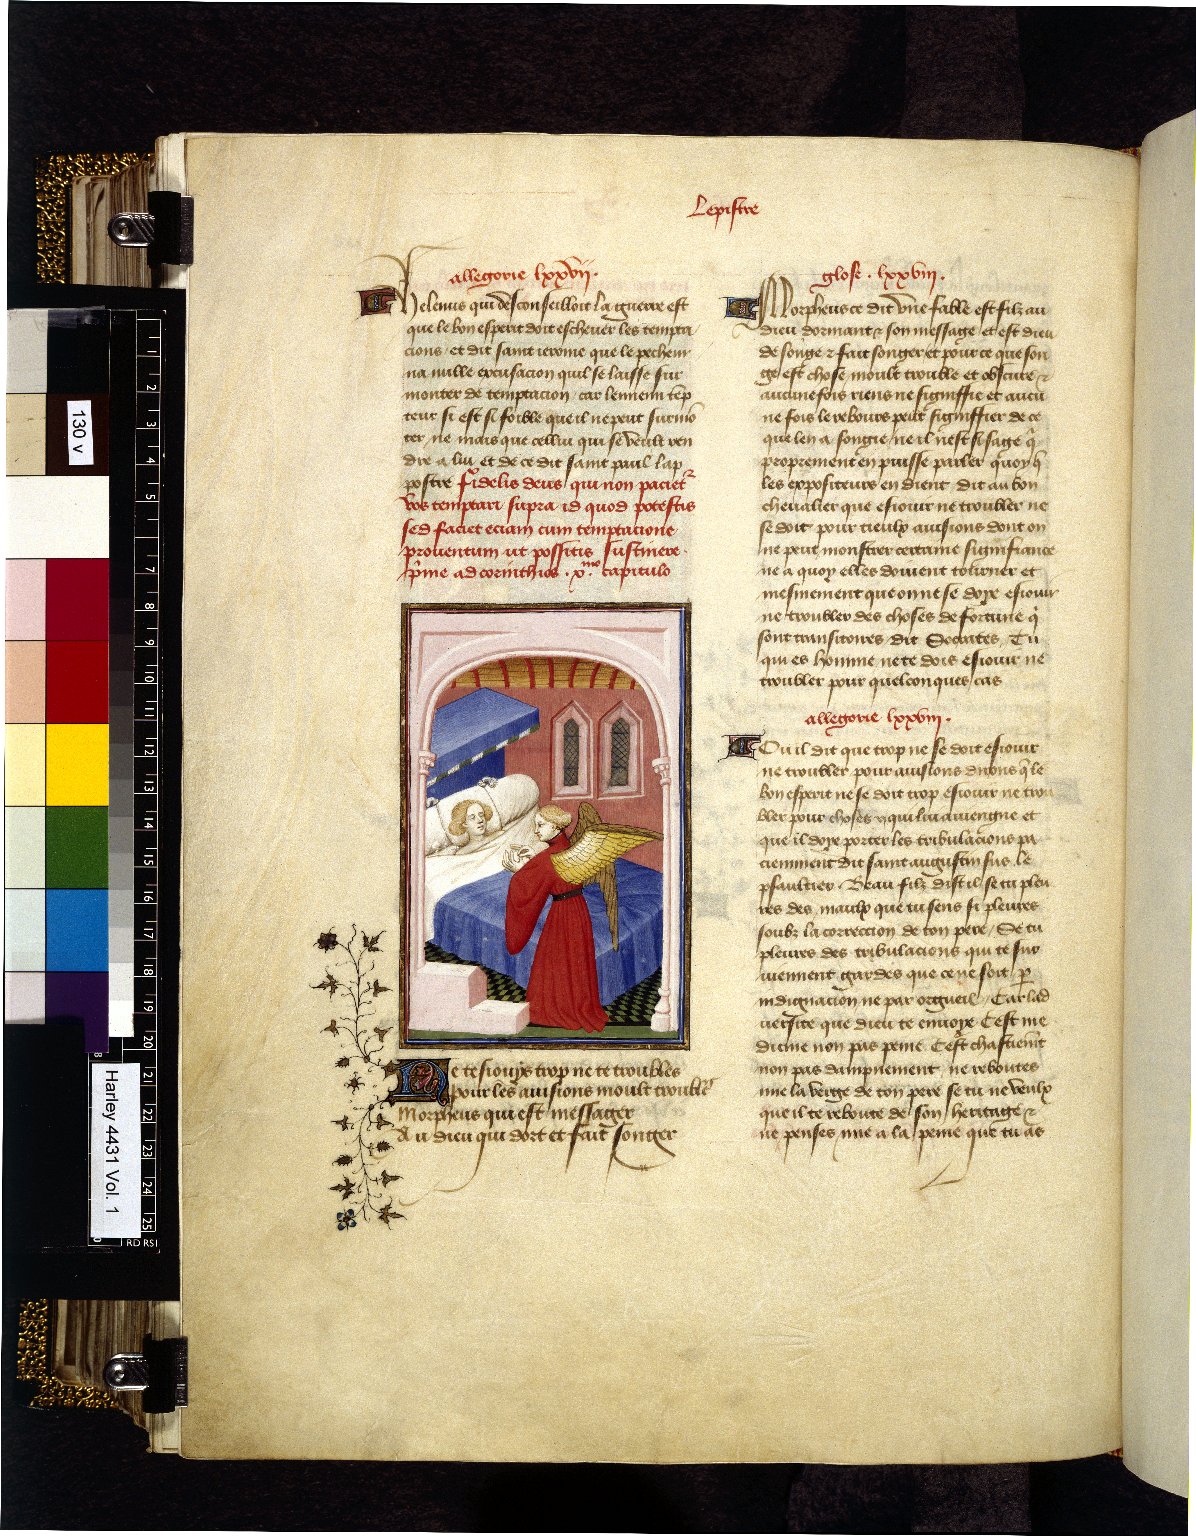 Lepistre
allegorie lxxvii.
Helenus qui desconseilloit la guerre est
que le bon esperit doit eschever les tempta
cions / et dit saint ierome que le pecheur
na nulle excusacion quil se laisse sur
monter de temptacion / car lennemi temp
teur si est si foible que il ne peut surmō
ter ne mais que cellui qui se veult ren
dre a lui et de ce dit saint paul lap
postre Fidelis deus qui non paciet²
vos temptari supra id quod potestis
sed faciet eciam cum temptacione
proventum ut possitis sustinere.
prime ad corinthios .x.mo capitulo
Ne tesiouys trop ne te troubles
Pour les avisions moult troubles
Morpheus qui est messager
Au dieu qui dort et fait songer
glose . lxxviii.
Morpheus ce dit une fable est filz au
dieu dormant & son message et est dieu
de songe & fait songer et pour ce que son
ge est chose moult trouble et obscure &
aucune fois riens ne signiffie et aucu
ne fois le rebours peut signiffier de ce
que len a songie ne il nest si sage q̄
proprement en puisse parler quoy q̄
les expositeurs en dient dit au bon
chevalier que esiouir ne troubler ne
se doit pour tieulx avisions dont on
ne peut monstrer certaine signifiance
ne a quoy elles doivent tourner et
mesmement que on ne se doye esiouir
ne troubler des choses de fortune q̄
sont transitoires dit Socrates. Tu
qui es homme ne te dois esiouir ne
troubler pour quelconques cas
allegorie lxxviii.
Ou il dit que trop ne se doit esiouir
ne troubler pour avisions dirons q̄ le
bon esperit ne se doit trop esiouir ne trou
bler pour choses qui lui aviengne et
que il doye porter les tribulacions pa
ciemment dit saint augustin sus le
psaultier. Beau filz dist il se tu pleu
res des maulx que tu sens si pleures
soubz la correccion de ton pere / Se tu
pleures des tribulacions qui te sur
viennent gardes que ce ne soit p̱
indignacion ne par orgueil / Car lad
versite que dieu te envoye Cest me
dicine non pas peine Cest chastiemt
non pas dampnement ne reboutes
mie la verge de ton pere se tu ne veulx
que il te reboute de son heritage &
ne penses mie a la peine que tu as
130 v
Harley 4431 Vol. 1
1
2
3
4
5
6
7
8
9
10
11
12
13
14
15
16
17
18
19
20
21
22
23
24
25